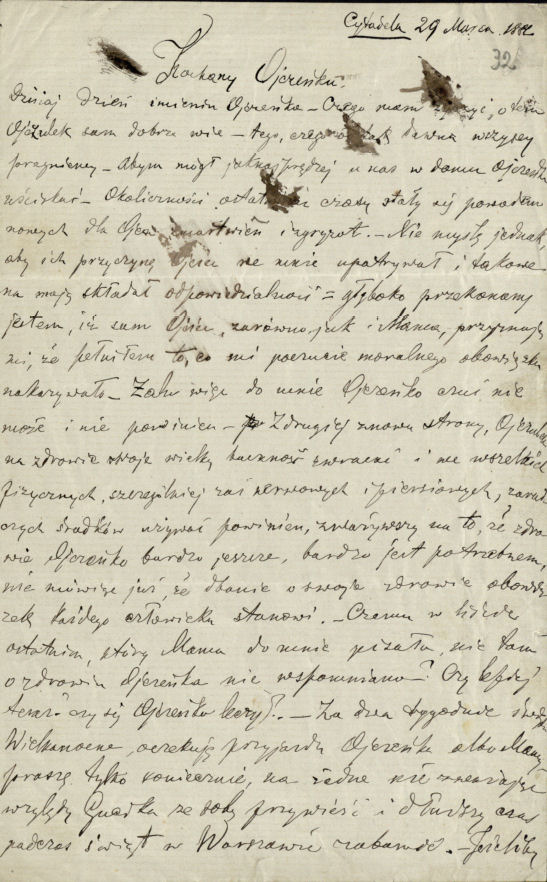 Cytadela 29 Marca 1882
32
Kochany Ojczeńku!
Dzisiaj dzień imienin Ojczeńka – Czego mam życzyć, o tem
Ojczulek sam dobrze wie – tego, czego od tak dawna wszyscy
pragniemy – Abym mógł jaknajprędzej u nas w domu Ojczeńka
uściskać – Okoliczności ostatnich czasów stały się powodem
nowych dla Ojca zmartwień i zgryzot. – Nie myślę jednak,
aby ich przyczynę Ojciec we mnie upatrywał i takowe
na moją składał odpowiedzialność = głęboko przekonany
jestem, iż sam Ojciec, zarówno jak i Mama, przyznają
mi, że pełniłem to, co mi poczucie moralnego obowiązku
nakazywało – Żalu więc do mnie Ojczeńko czuć nie
może i nie powinien – Z drugiej znowu strony, Ojczulek
na zdrowie swoje wielką baczność zwracać i we wszelkich
fizycznych, szczególniej zaś nerwowych i piersiowych,
czych środków używać powinien, zważywszy na to, że zdro-
wie Ojczeńka bardzo jeszcze, bardzo jest potrzebnem,
nie mówiąc już, że dbanie o swoje zdrowie obowią-
zek każdego człowieka stanowi. – Czemu w liście
ostatnim, który Mama do mnie pisała, nic tam
o zdrowiu Ojczeńka nie wspomniano? Czy lepiej
teraz? czy się Ojczeńko leczy? – Za dwa tygodnie
Wielkanocne, oczekuję przyjazdu Ojczeńka albo Mamy
proszę tylko koniecznie, na żadne nie zważając
względy Gucia ze sobą przywieść i dłuższy czas
podczas świąt w Warszawie zabawić. – Jeśliby